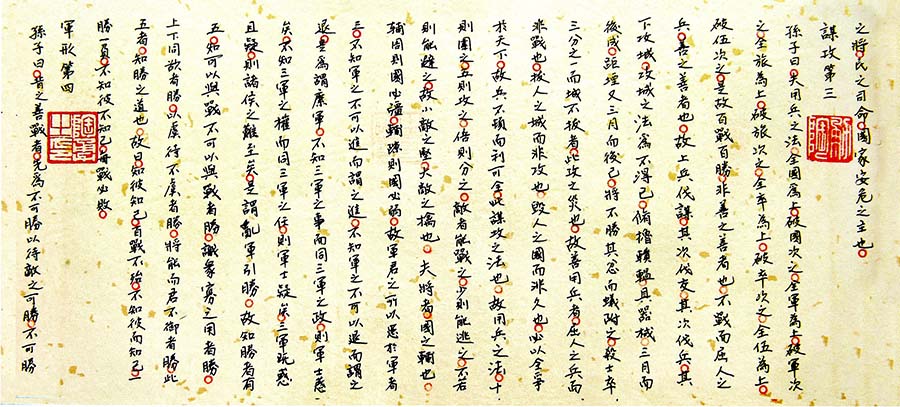 之將。民之司命。國家安危之主也。
謀攻第三
孫子曰。夫用兵之法。全國為上。破國次之。全軍為上。破軍次
之。全旅為上。破旅次之。全卒為上。破卒次之。全伍為上。
破伍次之。是故百戰百勝。非善之善者也。不戰而屈人之
兵。善之善者也。故上兵伐謀。其次伐交。其次伐兵。其
下攻城。攻城之法。為不得已。脩櫓轒轀。具器械。三月而
後成。距堙。又三月而後已。將不勝其忿。而蟻附之。殺士卒
三分之一。而城不拔者。此攻之災也。故善用兵者。屈人之兵而
非戰也。拔人之城而非攻也。毀人之國而非久也。必以全爭
於天下。故兵不頓而利可全。此謀攻之法也。故用兵之法。十
則圍之。五則攻之。倍則分之。敵者能戰之。少則能逃之。不若
則能避之。故小敵之堅。大敵之擒也。夫將者。國之輔也。
輔周則國必強。輔隙則國必弱。故軍君之所以患於軍者
三。不知軍之不可以進而謂之進。不知軍之不可以退而謂之
退。是為謂縻軍。不知三軍之事而同三軍之政。則軍士惑
矣。不知三軍之權而同三軍之任。則軍士疑矣。三軍既惑
且疑。則諸侯之難至矣。是謂亂軍引勝。故知勝者有
五。知可以與戰不可以與戰者勝。識衆寡之用者勝。
上下同欲者勝。以虞待不虞者勝。將能而君不御者勝。此
五者。知勝之道也。故曰。知彼知己。百戰不殆。不知彼而知己。一
勝一負。不知彼。不知己。每戰必敗。
軍形第四
孫子曰。昔之善戰者。先為不可勝。以待敵之可勝。不可勝